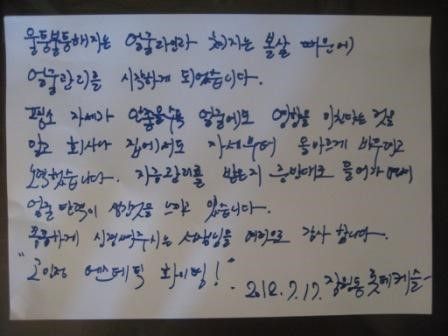 울퉁불퉁해지는 얼굴라인과 쳐지는 볼살 때문에
얼굴관리를 시작하게 되었습니다.
평소 자세가 안좋을수록 얼굴에도 영향을 미친다는 것을
알고 회사나 집에서도 자세부터 올아르게 바꾸려고
노력했습니다. 관리를 받는지 들어가면서
얼굴 탄력이 생긴것을 느끼고 있습니다.
꼼꼼하게 신경써주시는 선생님들 감사 합니다.
"고인정 에스테틱 화이팅!" 2012.7.17. 장원동 롯데캐슬